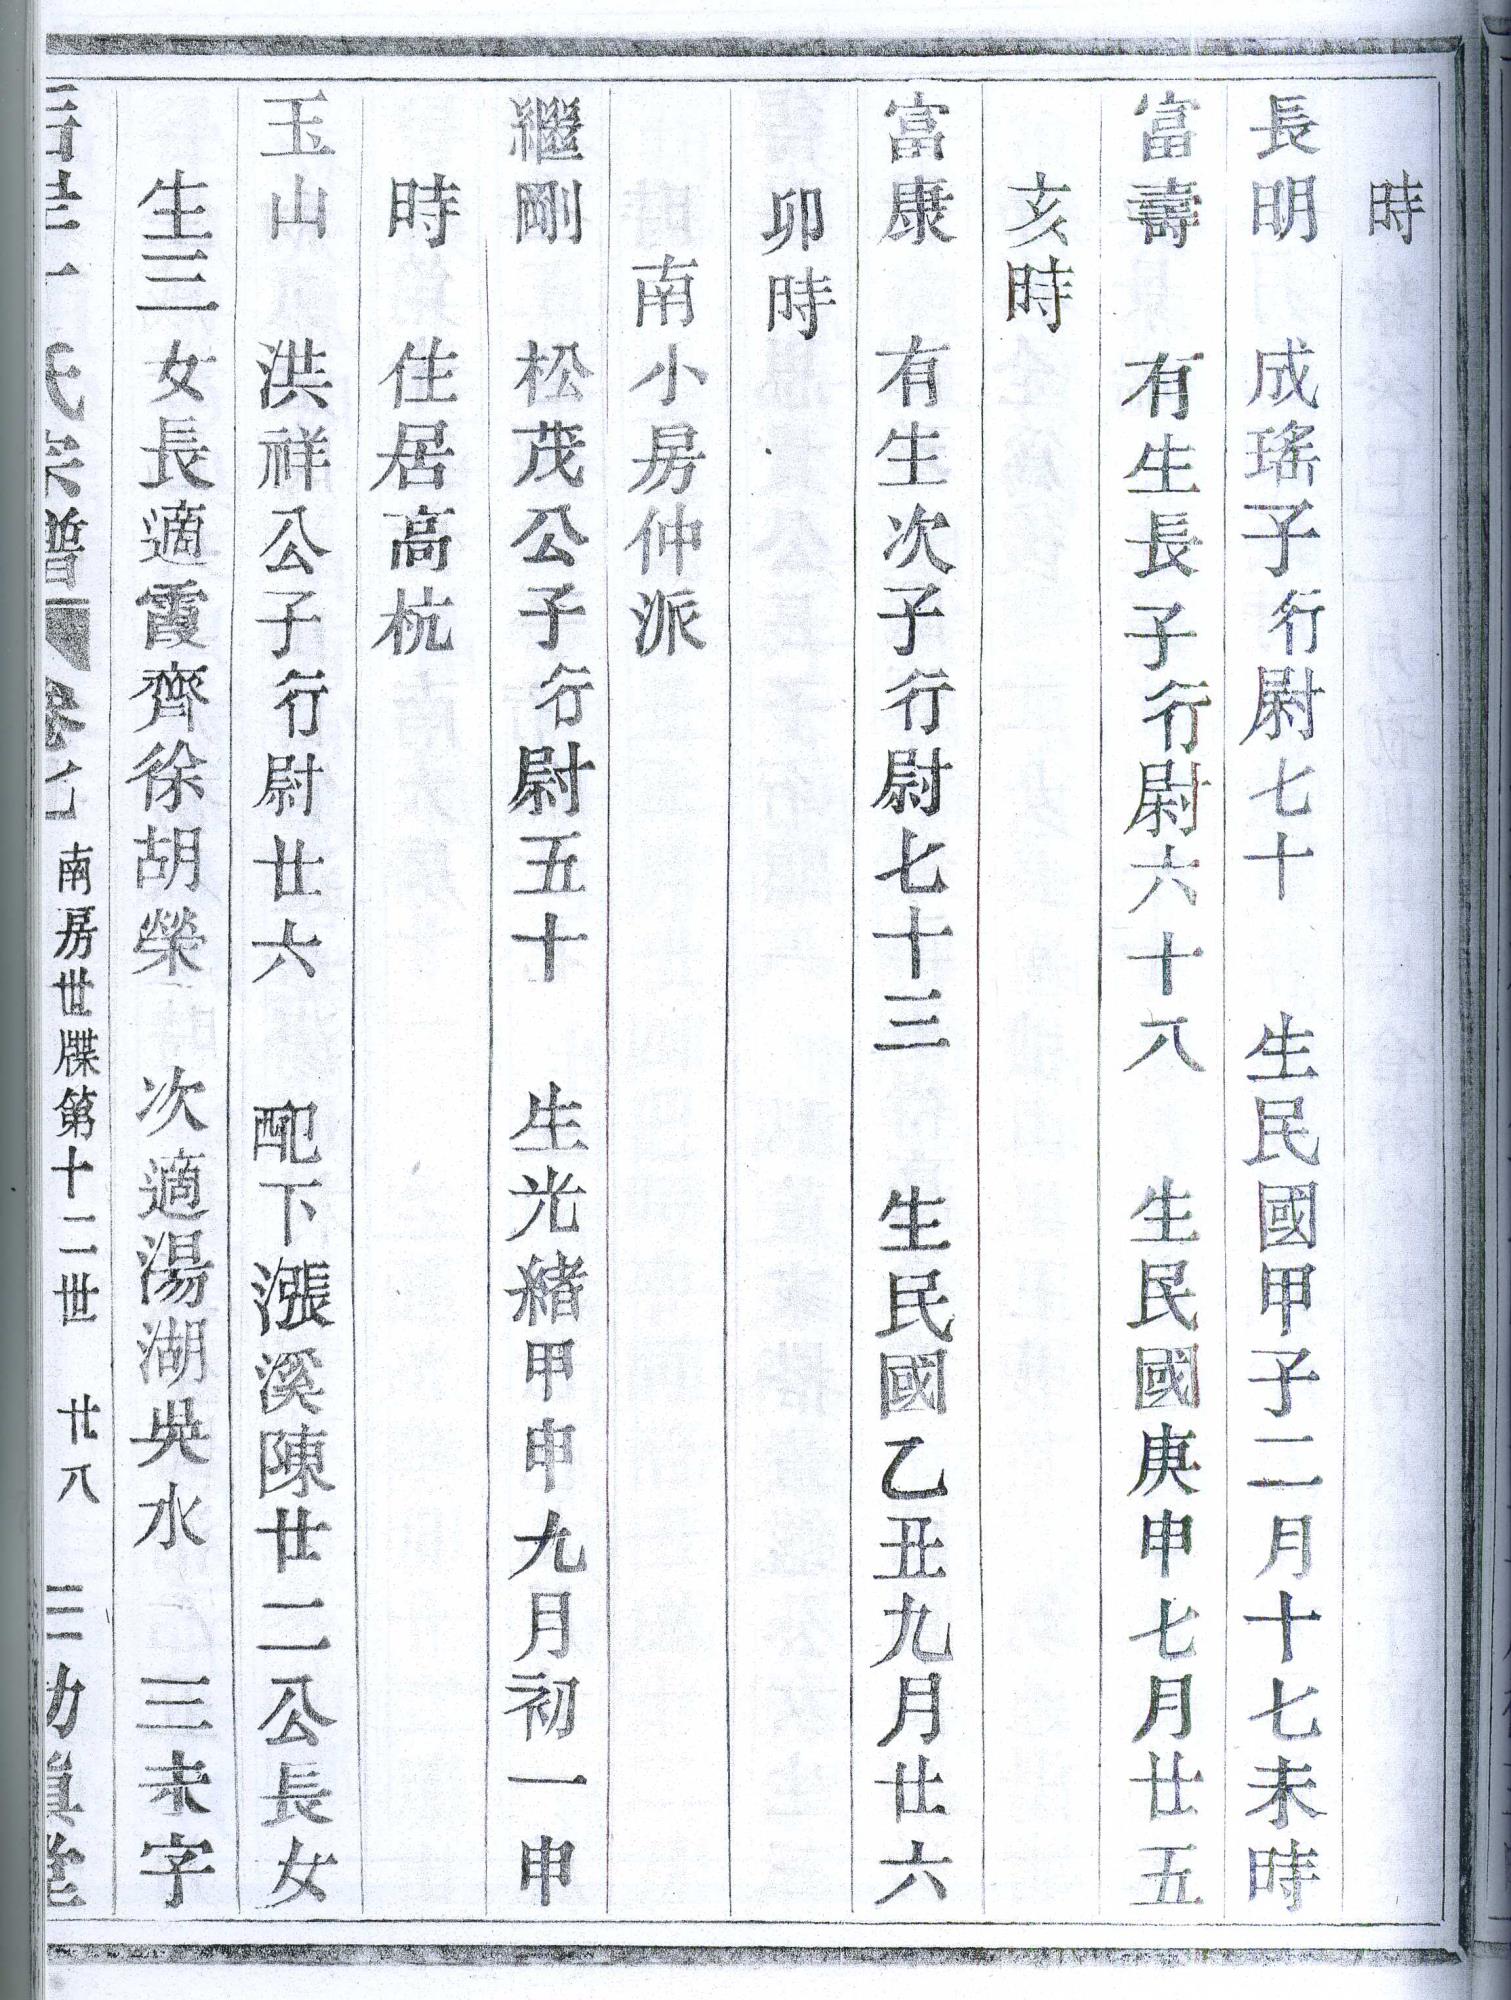 時
長明　成瑤子行尉七十　生民國甲子二月十七未時
富壽　有生長子行尉六十八　生民國庚申七月廿五
亥時
富康　有生次子行尉七十三　生民國乙丑九月廿六
卯時
南小房仲派
繼剛　松茂公子行尉五十　生光緒甲申九月初一申
時　住居高杭
玉山　洪祥公子行尉廿六　配下漲溪陳廿二公長女
生三女長適霞齊徐胡榮　次適湯湖吳水　三未字
氏宗譜　卷七　南房世牒第十二世　廿八